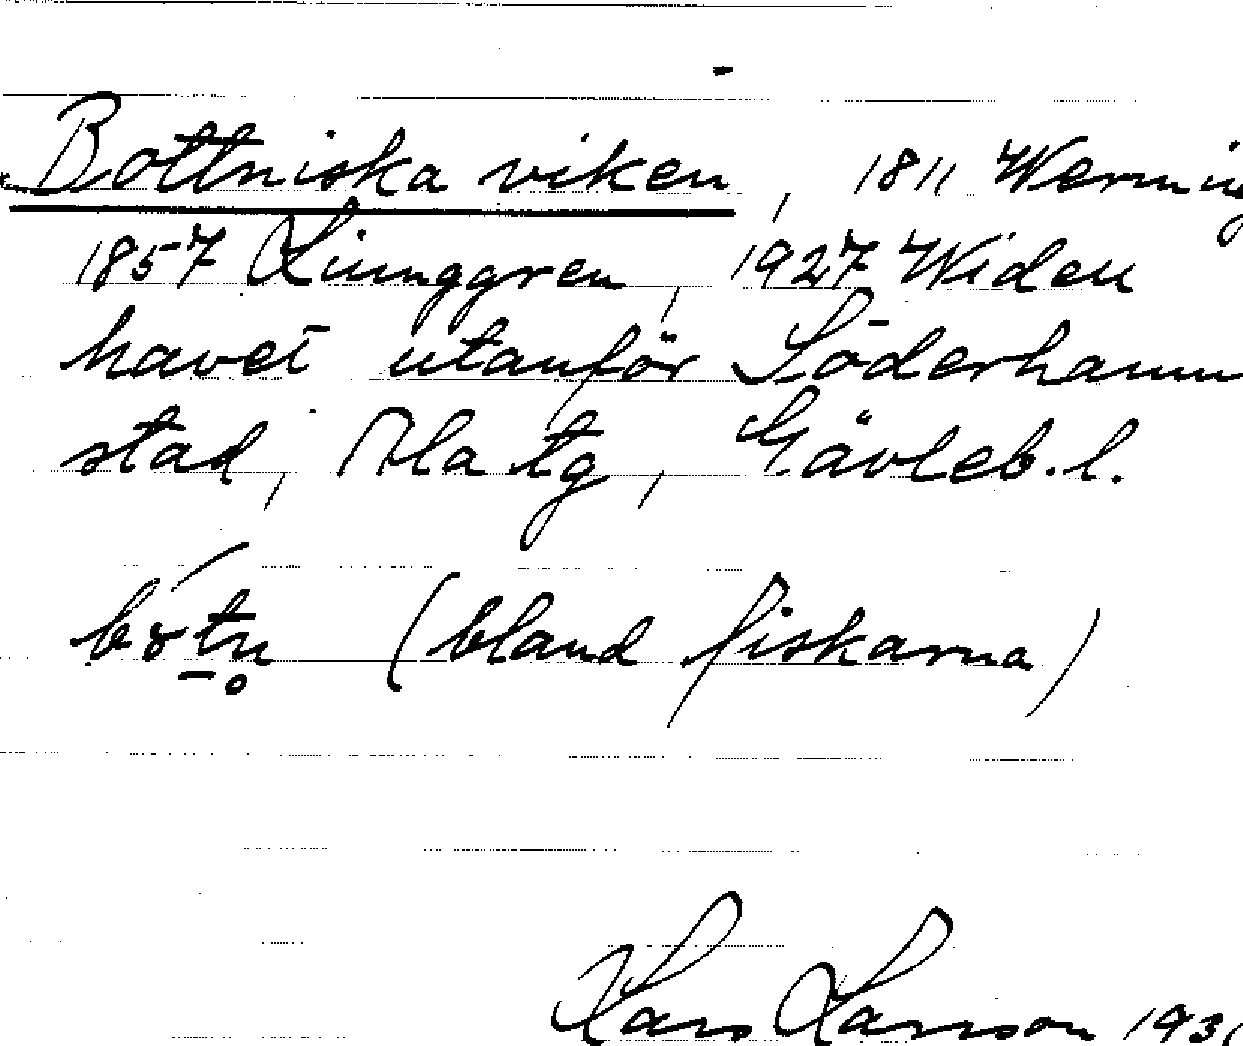 Bottniska viken, 1811 Werming
1857 Ljunggren, 1927 Widen
havet utanför Söderhamn
stad, Ala tg, Gävleb. l.
(bland fiskarna)
Lars Larsson 193